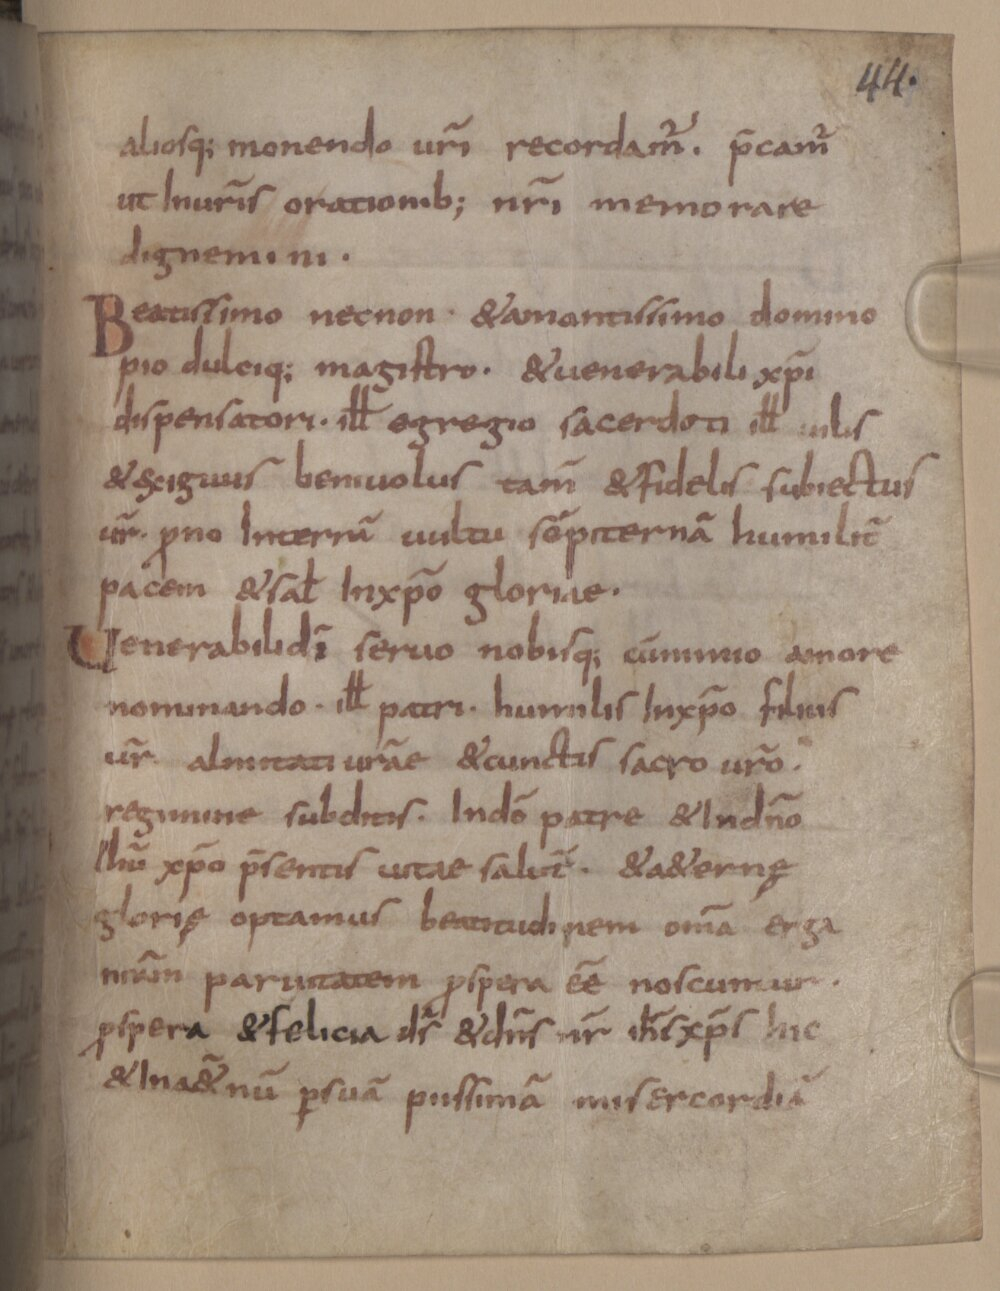 44.
aliosq; monendo ur̄i recordam̄r. p̄cam̄r
ut Inur̄is orationib; nr̄i memorare
dignemini.
Beatissimo necnon. &amantissimo domino
pio dulciq; magistro. &uenerabili xp̄i
dispensatori. ill egregio sacerdoti ill uilis
&exiguus beniuolus tam̄ &fidelis subiectus
ur̄. pno Interrā uultu sēpiternā humilit̄
pacem &sal̄ Inxp̄o gloriae.
Uenerabilidī seruo nobisq; cūnimio amore
nominando. ill patri. humilis Inxp̄o filius
ur̄. almitati ur̄ae &cunctis sacro ur̄o.
regimine subditis. Indō patre &Indn̄o
Ihū xp̄o p̄sentis uitae salut̄. &a&ernę
glorię optamus beatitudinem om̄a erga
nr̄am paruitatem ꝓspera eē noscuntur.
ꝓspera &felicia ds̄ &dn̄s nr̄ ih̄s xp̄s hic
&Ina&̄nū ꝑsuā piissimā misercordiā